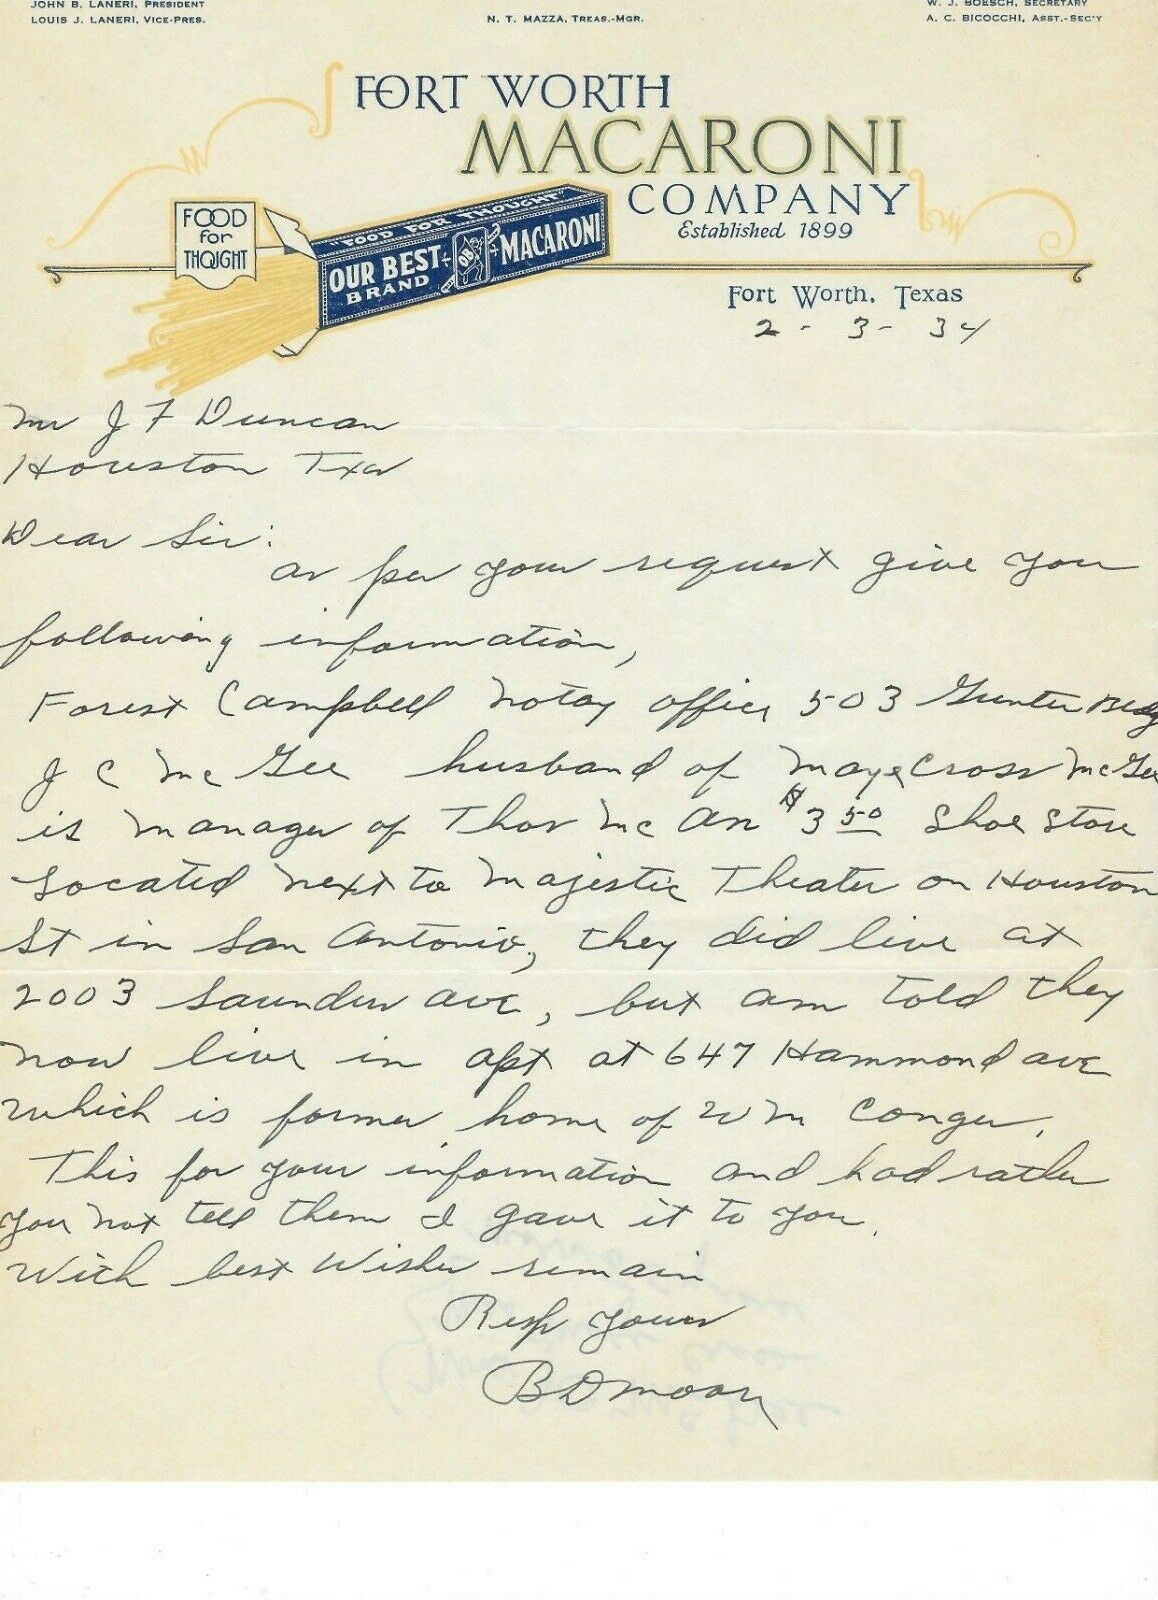 JOHN B. LANERI, PRESIDENT
LOUIS J. LANERI, VICE-PRES.
N. T. MAZZA, TREAS.-MGR.
W. J. BOESCH, SECRETARY
A. C. BICOCCHI, ASST.-SEC'Y
FORT WORTH
MACARONI
COMPANY
Established 1899
FOOD
for
THOUGHT
"FOOD FOR THOUGHT"
OUR BEST
BRAND
OB
MACARONI
Fort Worth, Texas
2 - 3 - 34
Mr J F Duncan
Houston Txas
Dear Sir:
as per your request give you
following information,
Forest Campbell Notay office 503 Gunter Bldg
J C McGee husband of Maye Cross McGee
is manager of Thos Mc An $3 50 Shoe Store
Located next to Majestic Theater on Houston
St in San Antonio, they did live at
2003 Saunders ave, but am told they
now live in apt at 647 Hammond ave
which is former home of Wm Conger.
This for your information and had rather
you not tell them I gave it to you.
With best Wishes remain
Resp yours
B D Moory